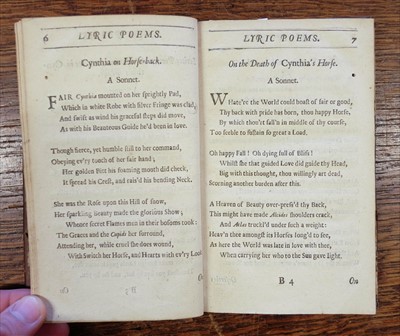 6 LYRIC POEMS.
Cynthia on Horse-back.
A Sonnet.
FAIR Cynthia mounted on her sprightly Pad,
Which in white Robe with silver Fringe was clad,
And swift as wind his graceful steps did move,
As with his Beauteous Guide he'd been in love.
Though fierce, yet humble still to her command,
Obeying ev'ry touch of her fair hand;
Her golden Bit his foaming mouth did check,
It spread his Crest, and rais'd his bending Neck.
She was the Rose upon this Hill of snow,
Her sparkling Beauty made the glorious Show;
Whence secret Flames men in their bosoms took:
The Graces and the Cupids her surround,
Attending her, while cruel she does wound,
With Switch her Horse, and Hearts with ev'ry Look.
On
LYRIC POEMS. 7
On the Death of Cynthia's Horse.
A Sonnet.
WHate're the World could boast of fair or good,
Thy back with pride has born, thou happy Horse,
By which thou'rt fall'n in middle of thy course,
Too feeble to sustain so great a Load.
Oh happy Fall! Oh dying full of bliss!
Whilst she that guided Love did guide thy Head,
Big with this thought, thou willingly art dead,
Scorning another burden after this.
A Heaven of Beauty over-press'd thy Back,
This might have made Alcides shoulders crack,
And Atlas truckl'd under such a weight:
Heav'n thee amongst its Horses long'd to see,
As here the World was late in love with thee,
When carrying her who to the Sun gave light.
B 4 On